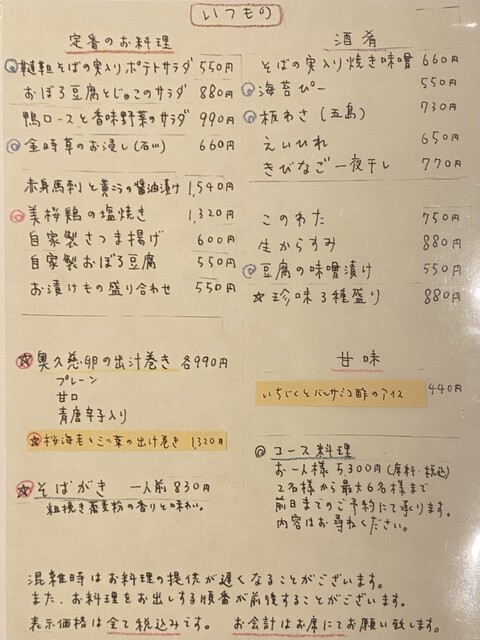 いつもの
定番のお料理
韃靼そばの実入りポテトサラダ 550円
おぼろ豆腐とじゃこのサラダ 880円
鴨ロースと香味野菜のサラダ 990円
金時草のお浸し(石川) 660円
赤身馬刺と黄ニラの醤油漬け 1,540円
美桜鶏の塩焼き 1,320円
自家製さつま揚げ 600円
自家製おぼろ豆腐 550円
お漬けもの盛り合わせ 550円
☆奥久慈卵の出汁巻き 各990円
プレーン
甘口
青唐辛子入り
☆桜海老と三つ葉の出汁巻き 1,320円
☆そばがき 一人前 830円
粗挽き蕎麦粉の香りと味わい。
酒肴
そばの実入り焼き味噌 660円
海苔ぴー 550円
板わさ(五島) 730円
えいひれ 650円
きびなご一夜干し 770円
このわた 750円
生からすみ 880円
豆腐の味噌漬け 550円
☆珍味3種盛り 880円
甘味
いちじくとバルサミコ酢のアイス 440円
◎コース料理
お一人様 5,300円(席料・税込)
2名様から最大6名様まで
前日までのご予約にて承ります。
内容はお尋ねください。
混雑時はお料理の提供が遅くなることがございます。
また、お料理をお出しする順番が前後することがございます。
表示価格は全て税込みです。 お会計はお席にてお願い致します。